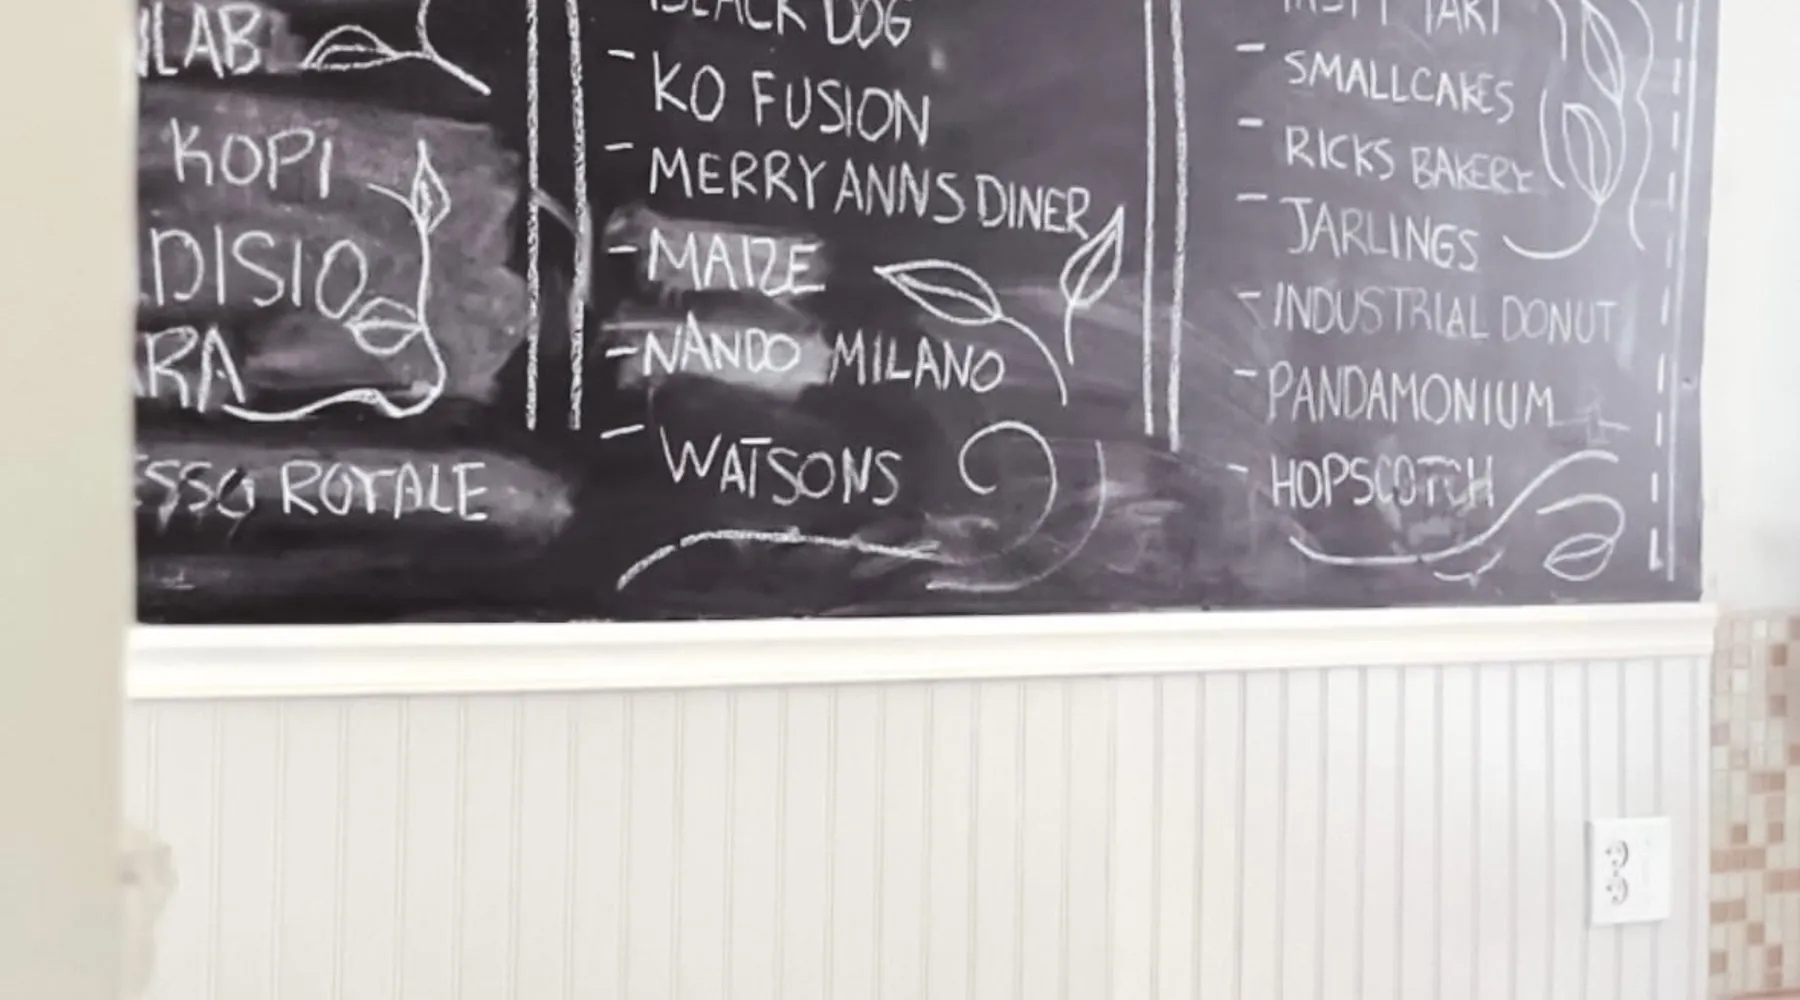 LAB
KOPI
DISIO
RA
ESSO ROYALE
BLACK DOG
- KO FUSION
- MERRY ANNS DINER
- MAIZE
- NANDO MILANO
- WATSONS
TART
- SMALLCAKES
- RICKS BAKERY
- JARLINGS
- INDUSTRIAL DONUT
- PANDAMONIUM
- HOPSCOTCH